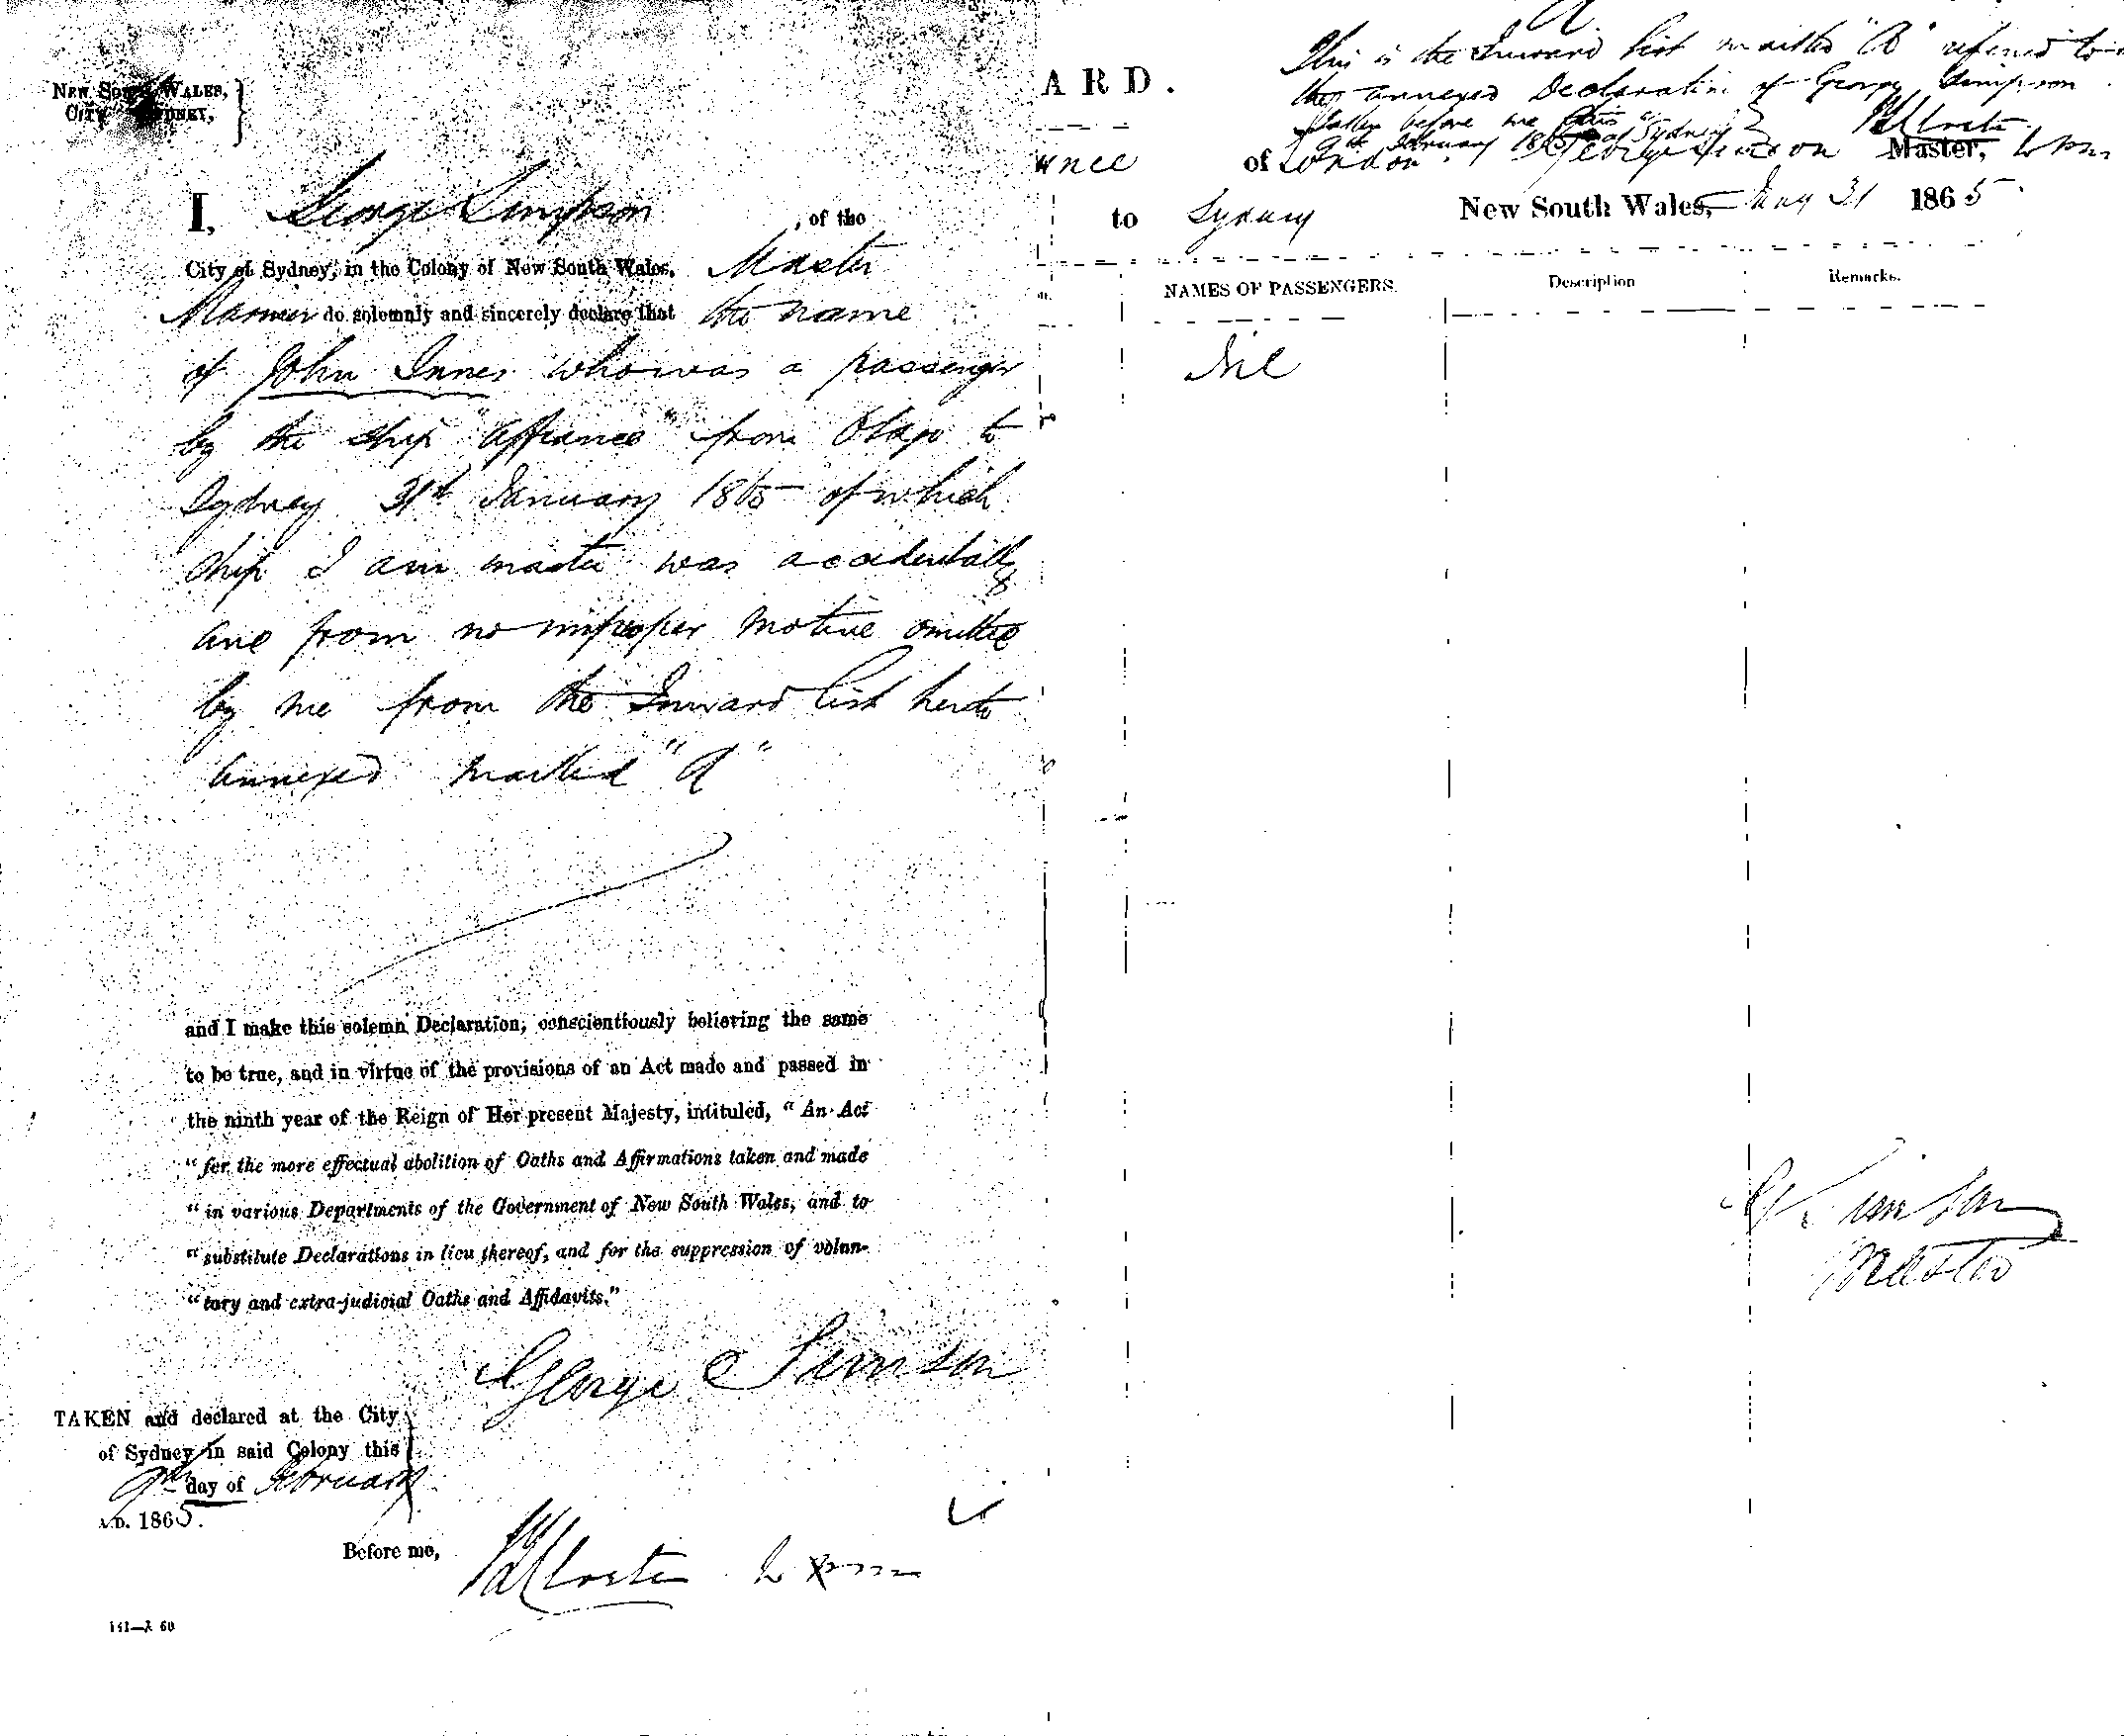 New South Wales,
City of Sydney,
I, George Simpson, of the
City of Sydney, in the Colony of New South Wales, Master
Mariner do solemnly and sincerely declare that the name
of John Innes who was a passenger
by the ship "Affiance" from Otago to
Sydney 31st January 1865 of which
ship I am master was accidentally
and from no improper motive omitted
by me from the Inward list hereto
annexed marked "A"
and I make this solemn Declaration, conscientiously believing the same
to be true, and in virtue of the provisions of an Act made and passed in
the ninth year of the Reign of Her present Majesty, intituled, "An Act
"for the more effectual abolition of Oaths and Affirmations taken and made
"in various Departments of the Government of New South Wales, and to
"substitute Declarations in lieu thereof, and for the suppression of volun-
"tary and extra-judicial Oaths and Affidavits."
George Simson
TAKEN and declared at the City
of Sydney in said Colony this
9th day of February
A.D. 1865.
Before me,
A
This is the Inward list marked "A" referred to in
the annexed Declaration of George Simpson
taken before me this
9th February 1865 at Sydney
ARD.
ance of London George Simson Master,
to Sydney New South Wales, Jany 31 1865
NAMES OF PASSENGERS. Description Remarks.
Nil
G. Simson
Master